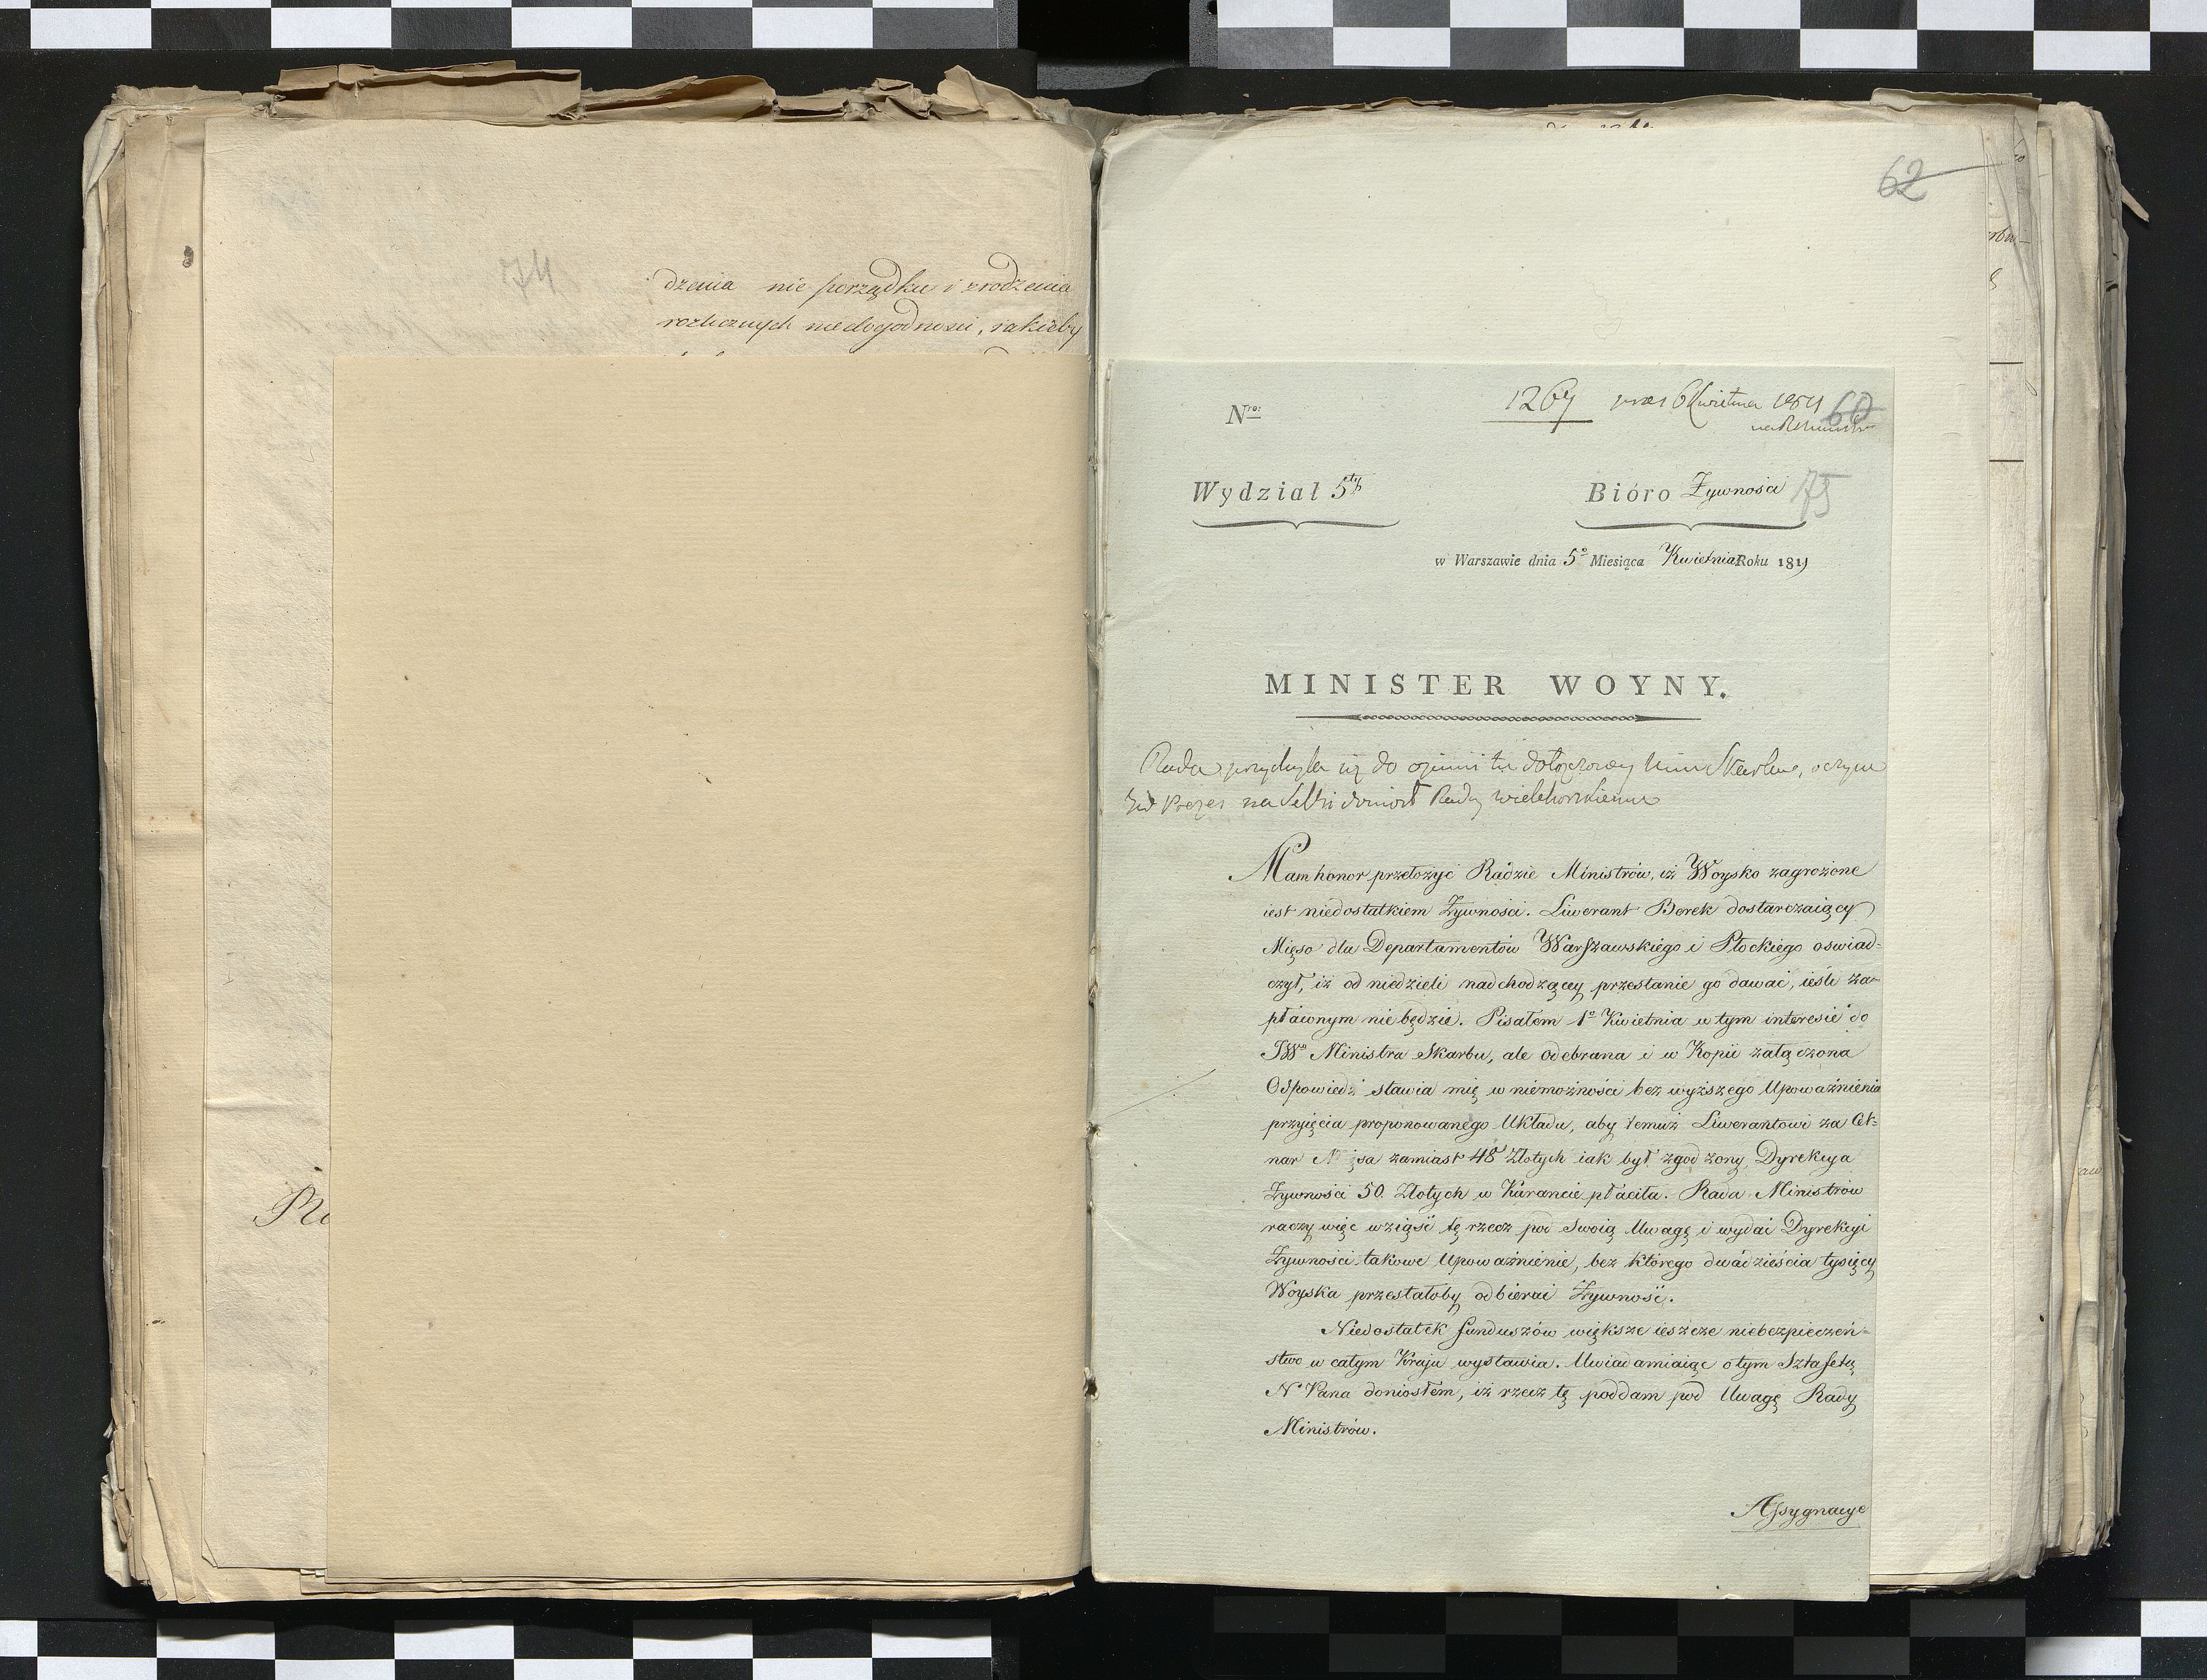 74
dzenia nie porządku i zrodzenia
rozlicznych niedogodnosci, iakieby
62
Nro:
1269 6 Kwietnia 1811
60
Wydział 5ty
Bióro Żywności 75
w Warszawie dnia 5o Miesiąca Kwietnia Roku 1811
MINISTER WOYNY.
Rada przychyla się do opinii tu dołączoney Min Skarbu, o czym
Prezes na Sessji doniosł Radcy Wielhorskiemu
Mam honor przełożyć Radzie Ministrów, iż Woysko zagrożone
iest niedostatkiem Żywności. Liwerant Berek dostarczaiący
Mięso dla Departamentów Warszawskiego i Płockiego oswiad-
czył, iż od niedzieli nadchodzącey przestanie go dawać, ieśli za-
płaconym nie będzie. Pisałem 1o Kwietnia w tym interesie do
JWo Ministra Skarbu, ale odebrana i w Kopii załączona
Odpowiedź stawia mię w niemożności bez wyższego Upoważnienia
przyięcia proponowanego Układu, aby temuż Liwerantowi za Cet-
nar Mięsa zamiast 48 Złotych iak był zgodzony, Dyrekcya
Żywności 50. Złotych w Kurancie płaciła. Rada Ministrów
raczy więc wziąść tę rzecz pod Swoią Uwagę i wydać Dyrekcyi
Żywności takowe Upoważnienie, bez którego dwadzieścia tysięcy
Woyska przestałoby odbierać Żywność.
Niedostatek funduszów większe ieszcze niebezpieczeń-
stwo w całym Kraju wystawia. Uwiadamiaiąc o tym Sztafetą
N. Pana doniosłem, iż rzecz tę poddam pod Uwagę Rady
Ministrów.
Assygnacye